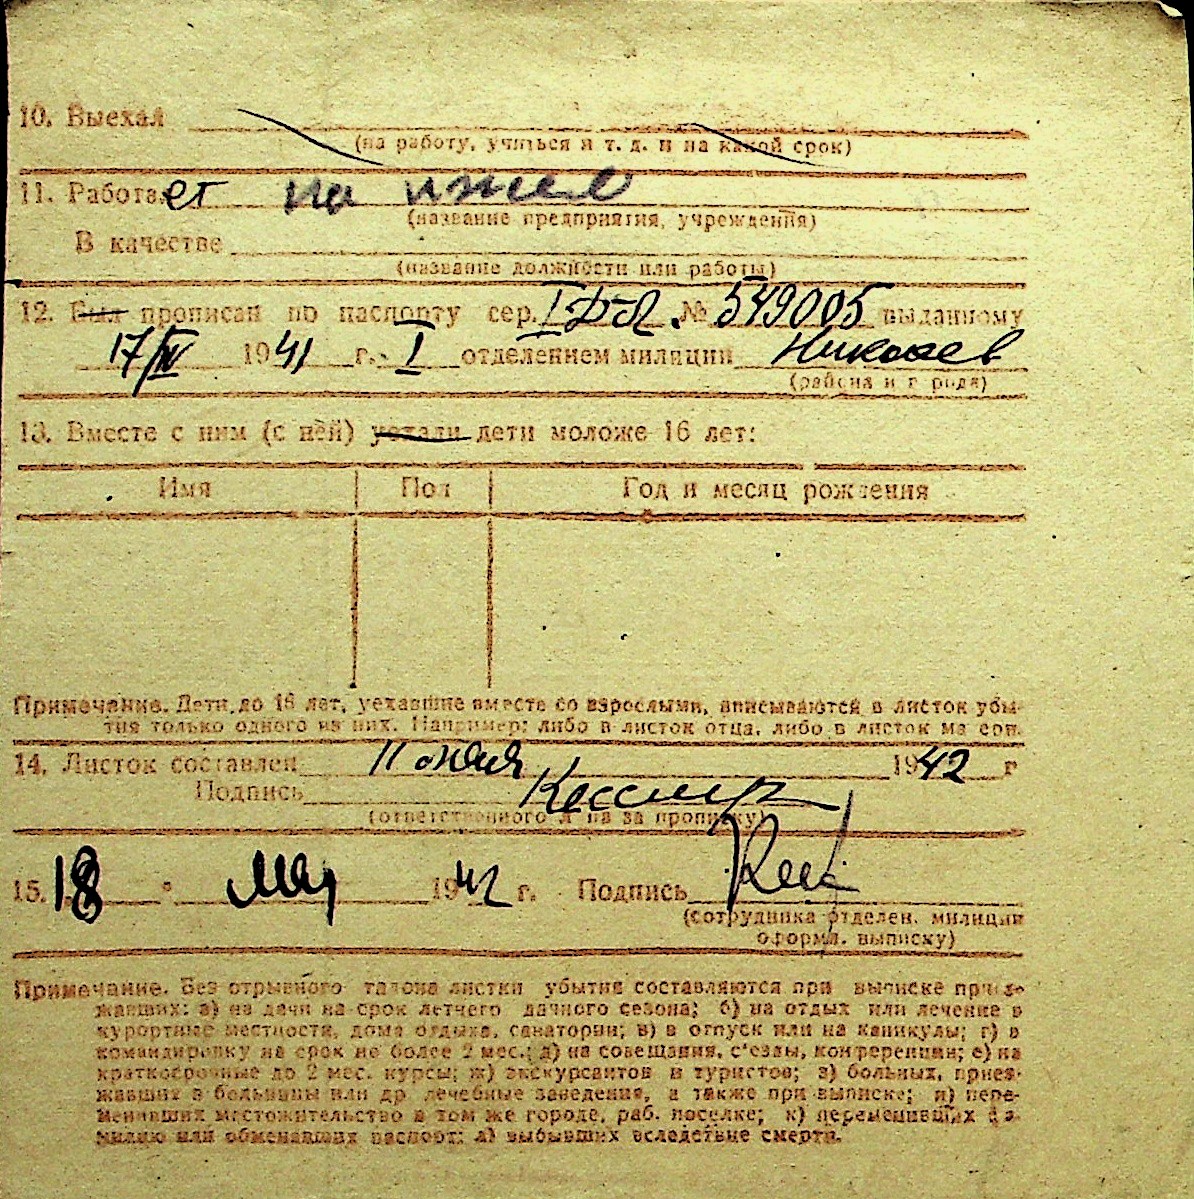 10. Выехал
(на работу, учиться и т. д. и на какой срок)
11. Работает на
(название предприятия, учреждения)
В качестве
(название должности или работы)
12. Был прописан по паспорту сер. № 549005 выданному
17/IV 1941 г. I отделением милиции Николаев
(района и города)
13. Вместе с ним (с ней) уехали дети моложе 16 лет:
Имя Пол Год и месяц рождения
Примечание. Дети до 16 лет, уехавшие вместе со взрослыми, вписываются в листок убы-
тия только одного из них. Например: либо в листок отца, либо в листок матери.
14. Листок составлен 1942 г
Подпись
(ответственного лица за прописку)
15. 18 • Мая 1942 г. Подпись
(сотрудника отделен. милиции
оформл. выписку)
Примечание. Без отрывного талона листки убытия составляются при выписке приез-
жавших: а) на дачи на срок летнего дачного сезона; б) на отдых или лечение в
курортные местности, дома отдыха, санатории; в) в отпуск или на каникулы; г) в
командировку на срок не более 2 мес.; д) на совещания, с'езды, конференции; е) на
краткосрочные до 2 мес. курсы; ж) экскурсантов и туристов; з) больных, приез-
жавших в больницы или др лечебные заведения, а также при выписке; и) пере-
менивших местожительство в том же городе, раб. поселке; к) переменивших фа-
милию или обменявших паспорт; л) выбывших вследствие смерти.